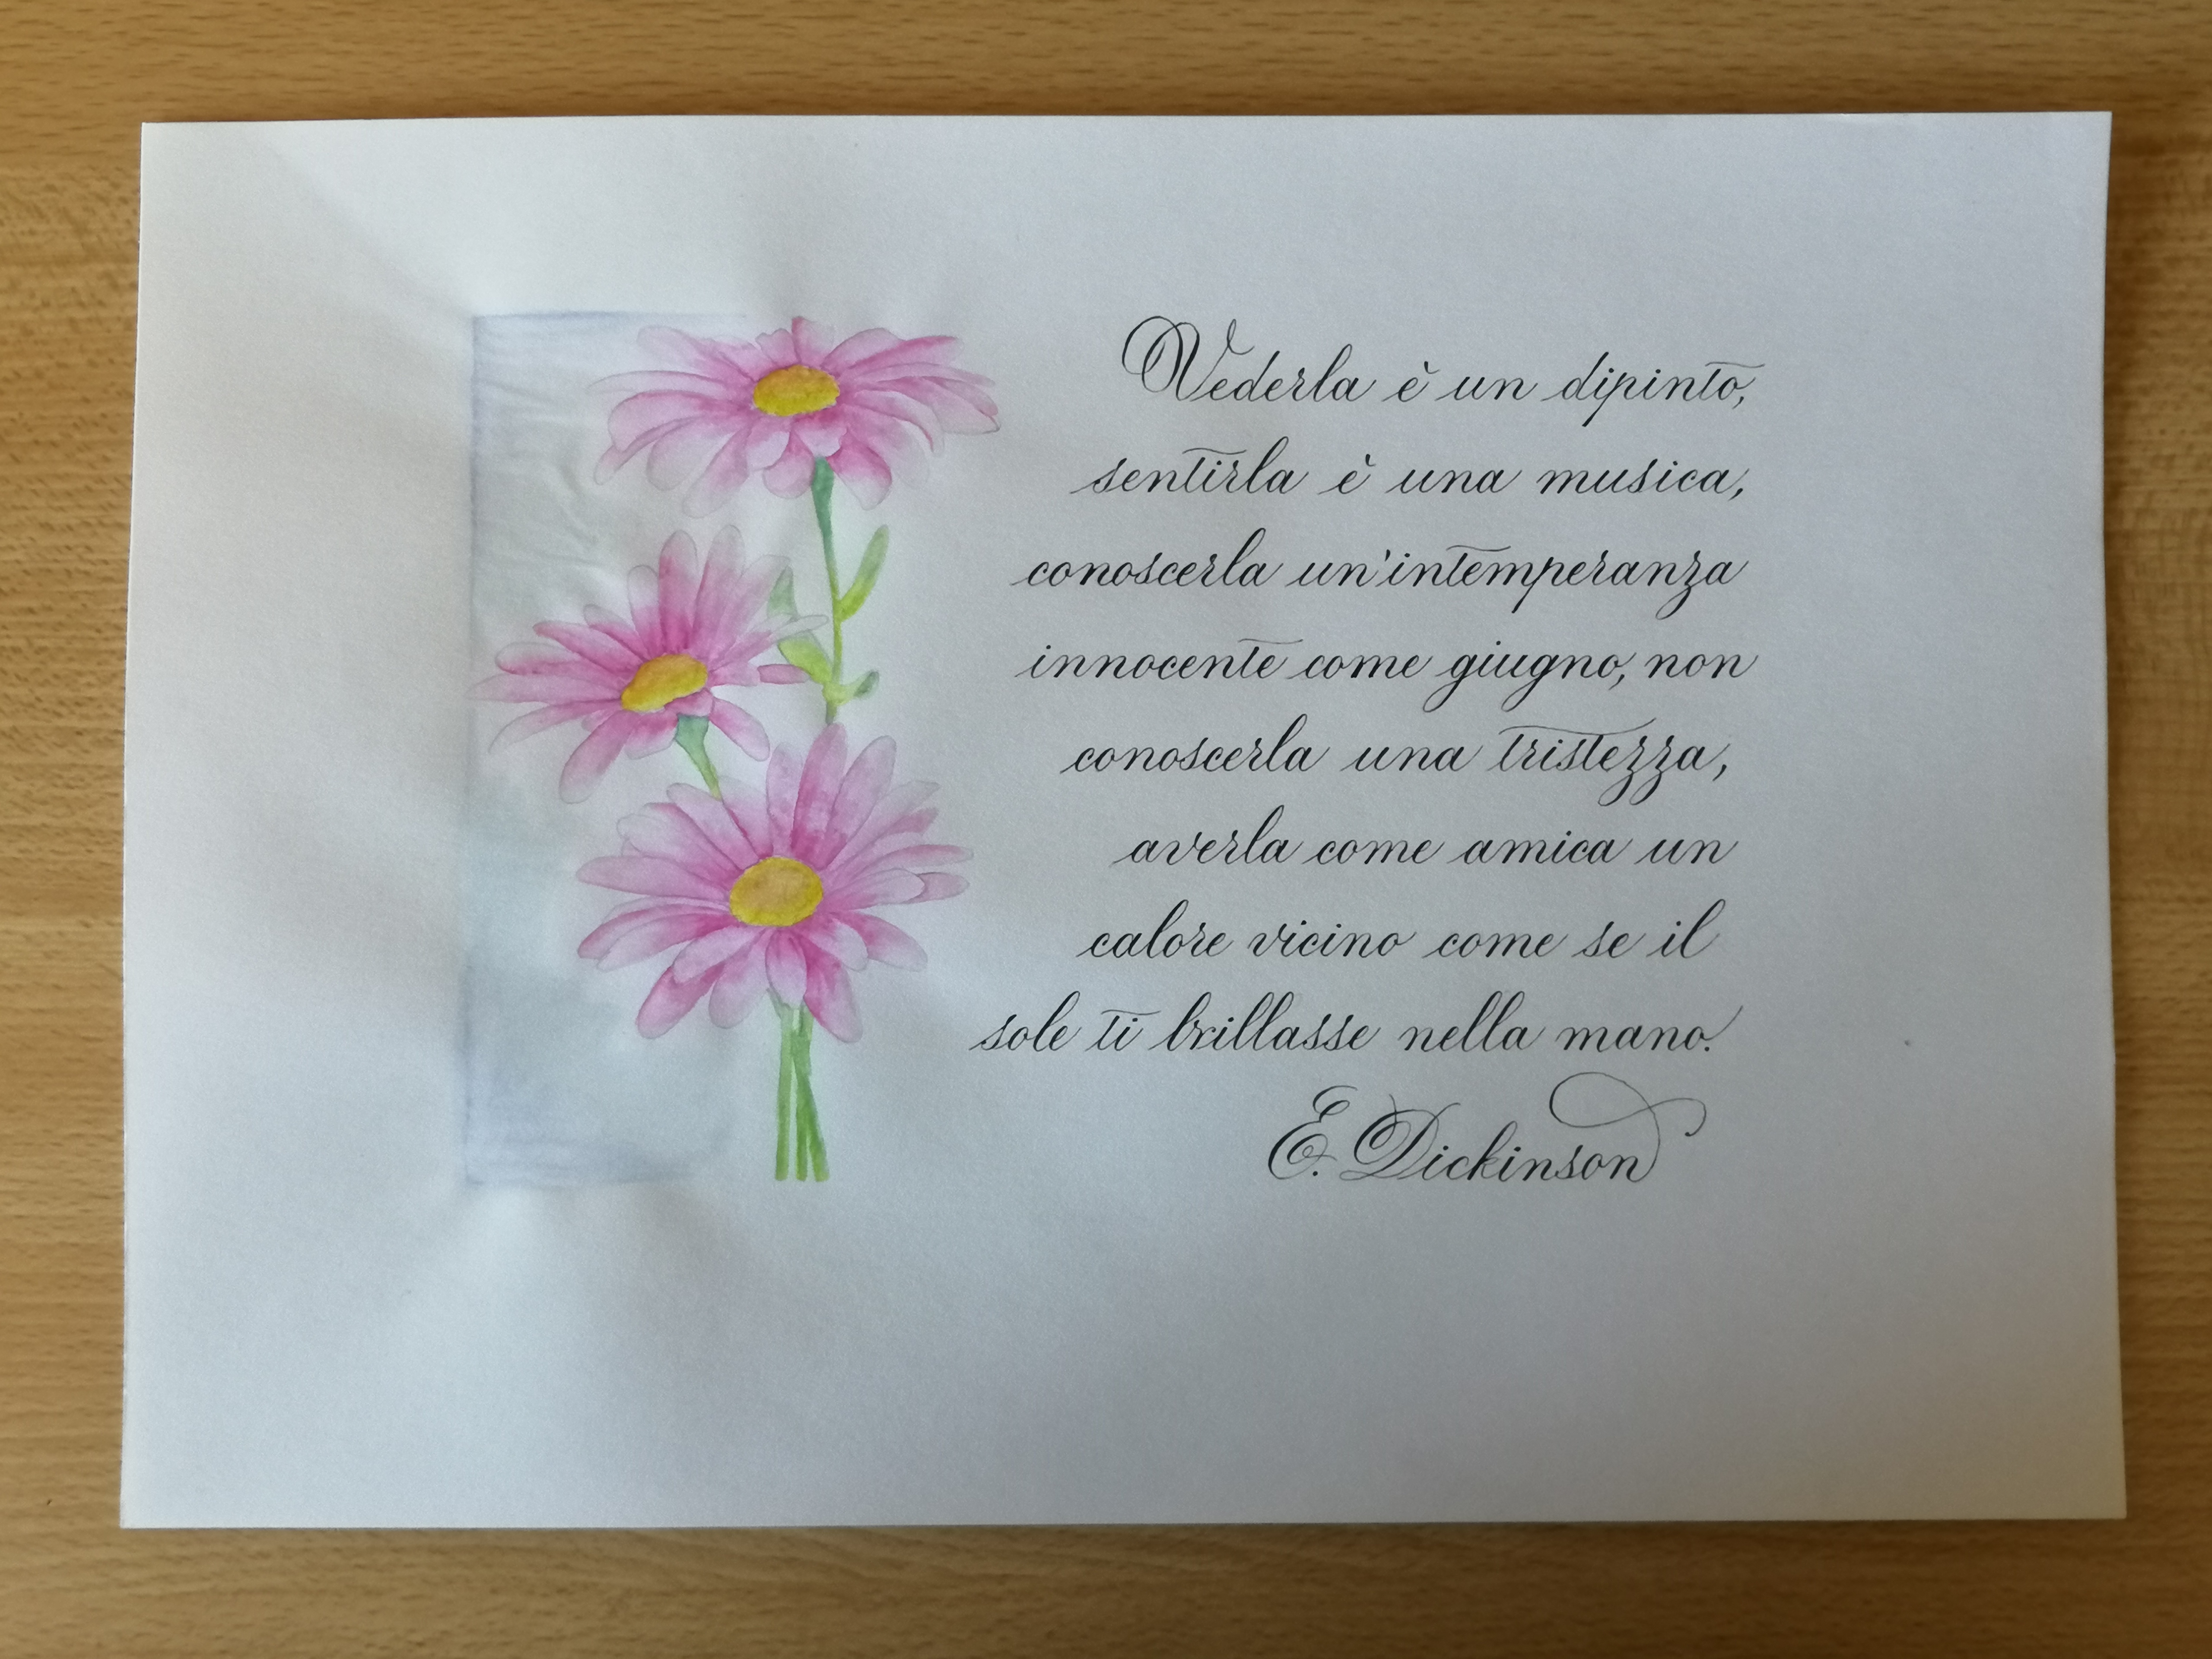 Vederla è un dipinto,
sentirla è una musica,
conoscerla un'intemperanza
innocente come giugno, non
conoscerla una tristezza,
averla come amica un
calore vicino come se il
sole ti brillasse nella mano.
E. Dickinson